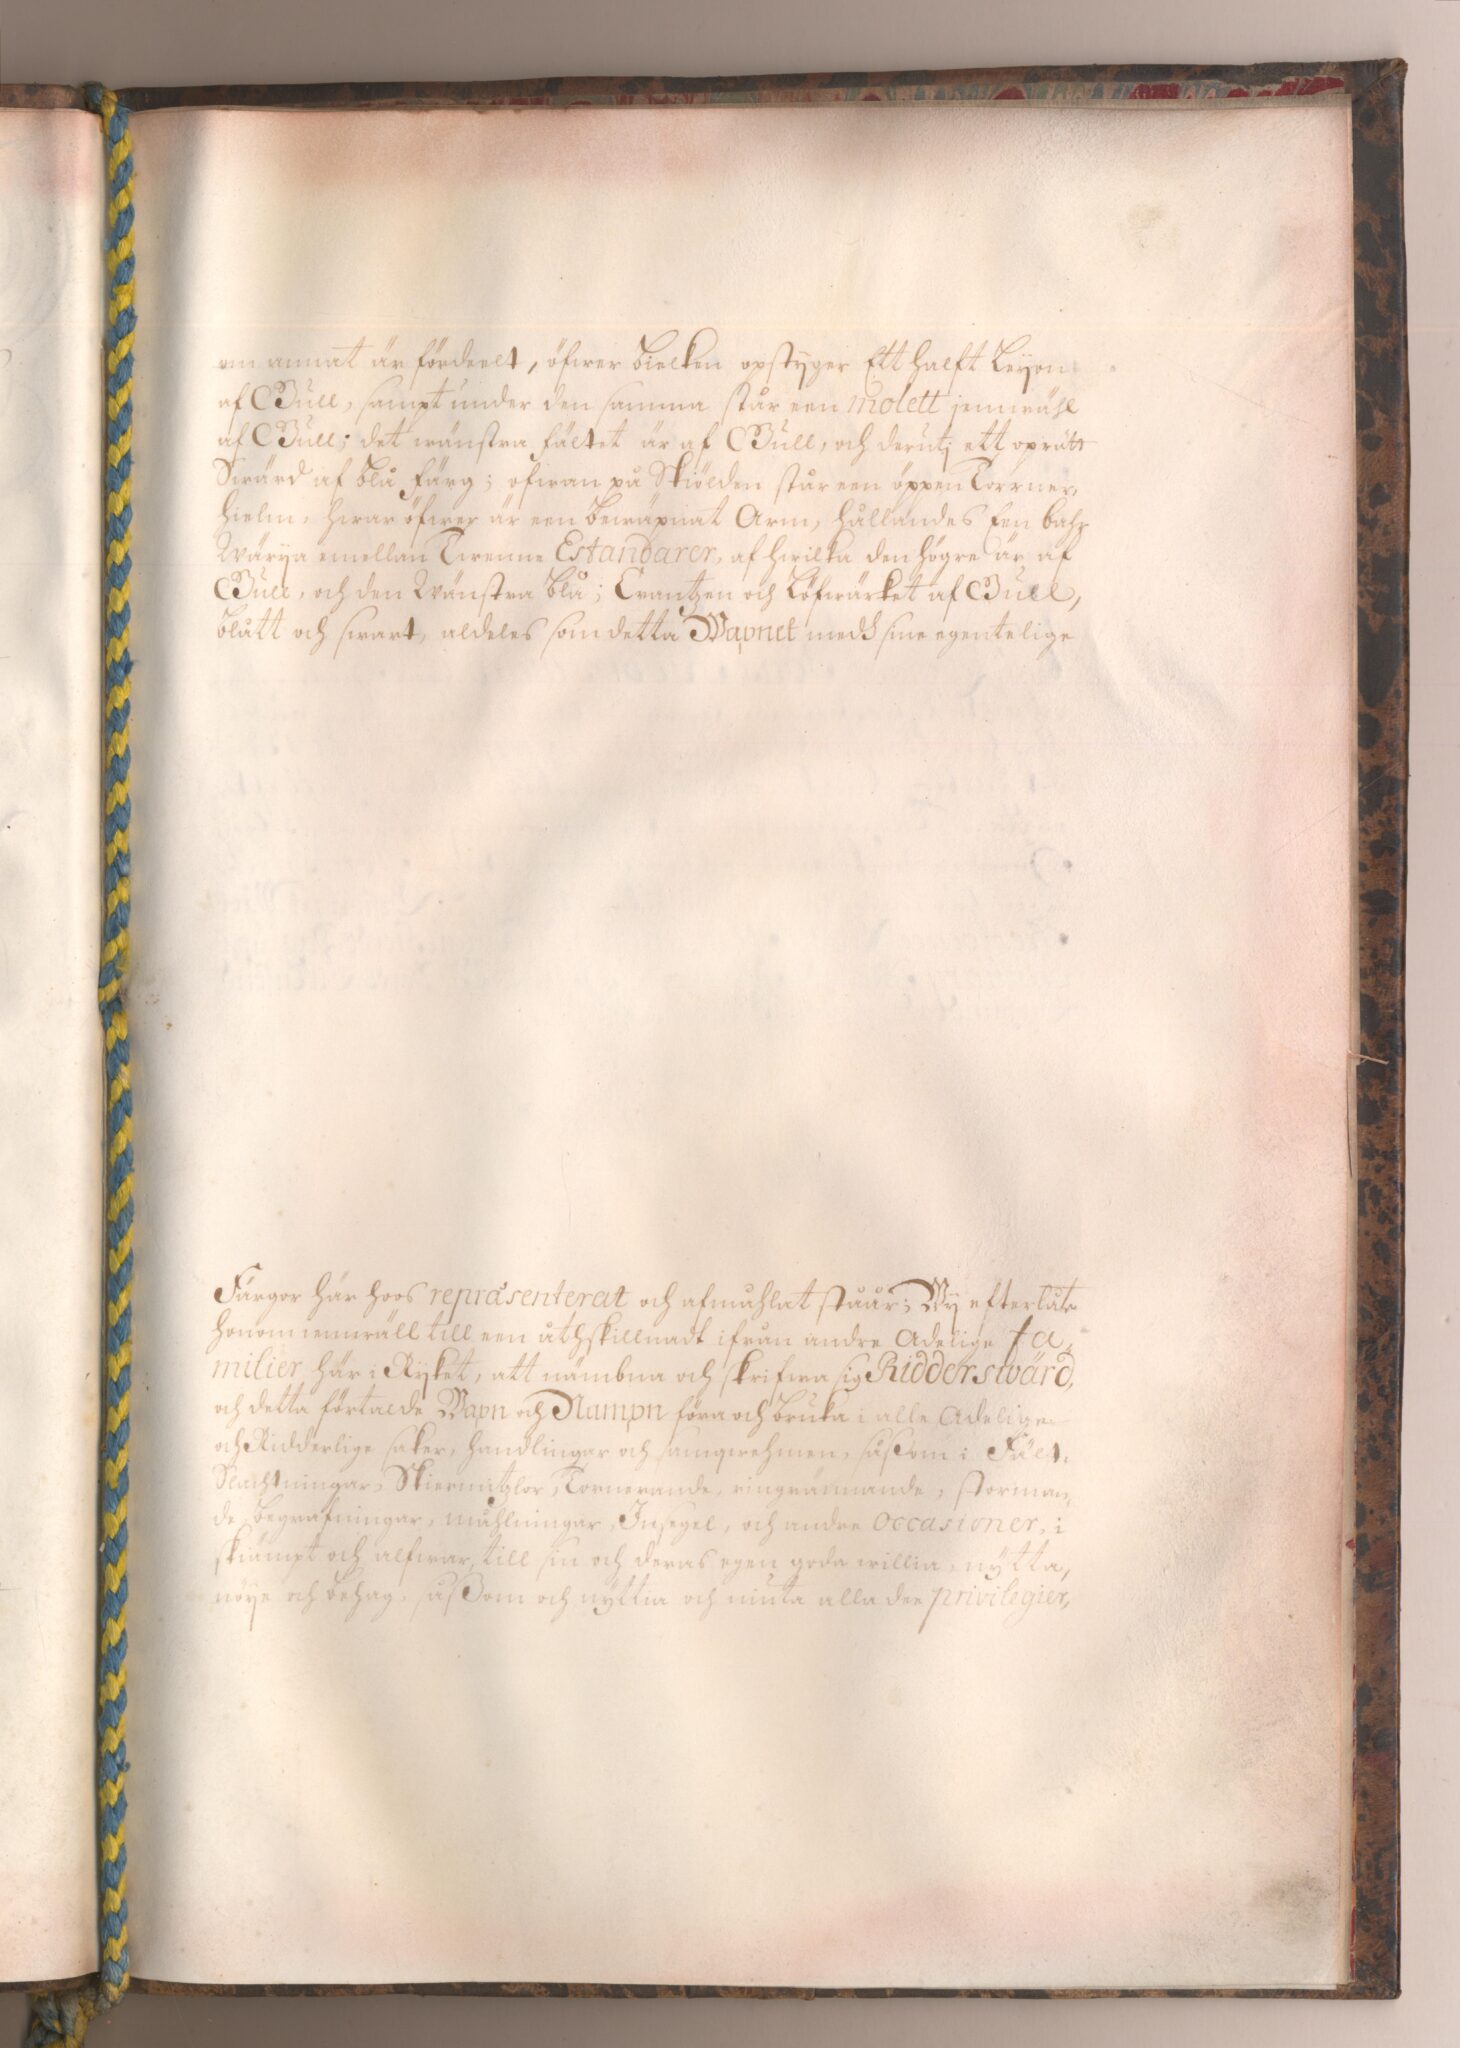 om annat är fördeelt, öfwer bielken opstyger Ett halft Leyon
af Gull, sampt under den samma står een molett jemwähl
af Gull; det wänstra fältet är af Gull, och derutj ett oprätt
Swärd af blå färg; ofwan på Skiölden står een öppen Torner,
hielm, hwar öfwer är een bewäpnat Arm, hållandes Een bahr
Wärya emellan Twenne Estandarer, af hwilka den högre är af
Gull, och den Wänstra blå; Crantzen och Löfwärket af Gull,
blått och swart, aldeles som detta Wapnet medh sine egentelige
Färgor här hoos repræsenterat och afmåhlat ståår; Wy efterlåte
honom iemwäll till een åthskillnadt ifrån andre Adelige fa,
milier här i Ryket, att nämbna och skrifwa sig Ridderswärd,
och detta förtalde Wapn och Nampn föra och bruka i alle Adelige
och Ridderlige saker, handlingar och samqwehmen, såßom i Fält,
Slachtningar, Skiermitzlor, Tornerande, ringrännande, storman,
de, begrafningar, måhlningar, Insegel, och andre Occasioner, i
skiämpt och alfwar, till sin och deras egen goda willia, nytta,
nöye och behag, såßom och nyttia och niuta alla dee privilegier,